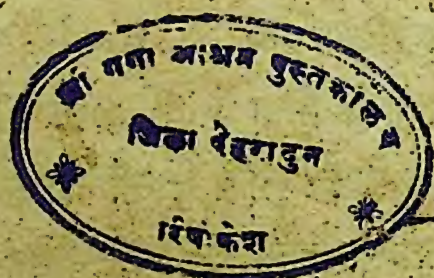 श्री गंगा आश्रम पुस्तकालय
जिला देहरादुन
रिषिकेश